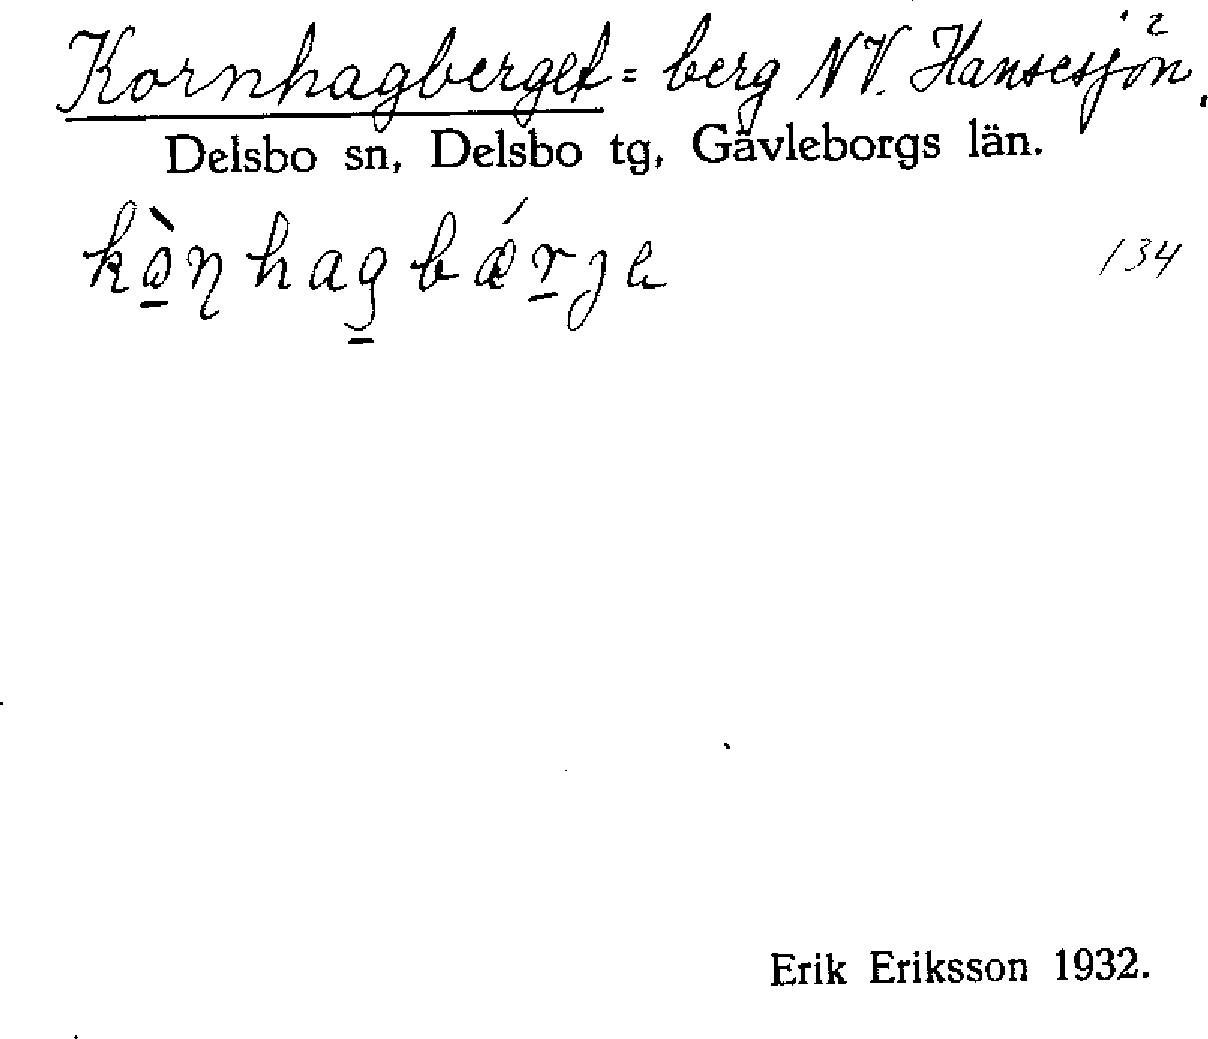 Kornhagberget = berg NV. Hansesjön.
Delsbo sn, Delsbo tg, Gävleborgs län.
134
Erik Eriksson 1932.